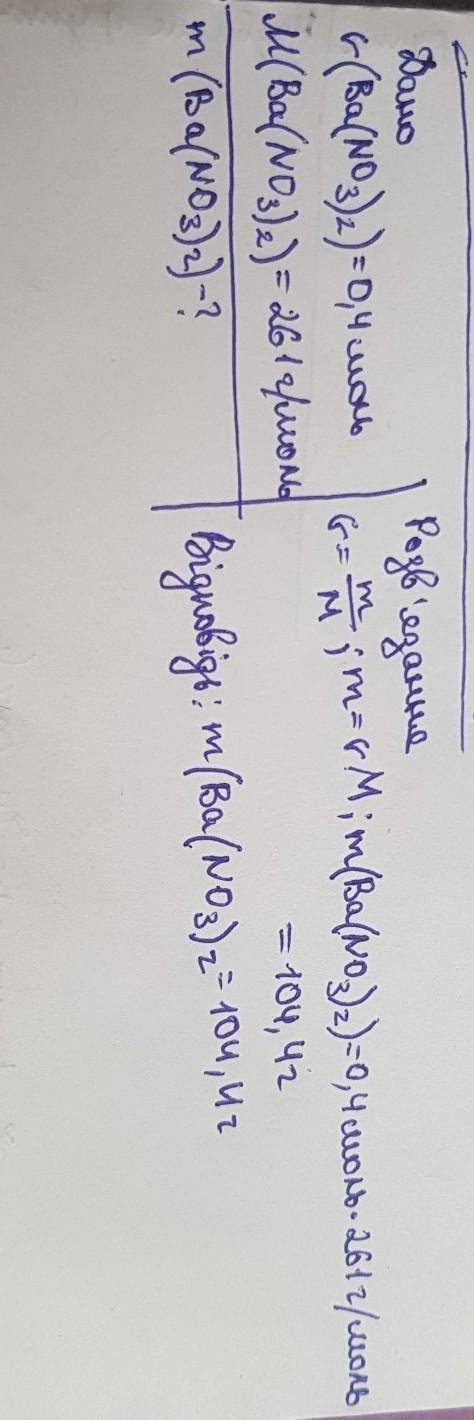 Дано
ν(Ba(NO3)2)=0,4 моль
M(Ba(NO3)2)=261 г/моль
m(Ba(NO3)2)-?
Розв'язання
ν=m/M; m=νM; m(Ba(NO3)2)=0,4 моль·261 г/моль
=104,4г
Відповідь: m(Ba(NO3)2=104,4г